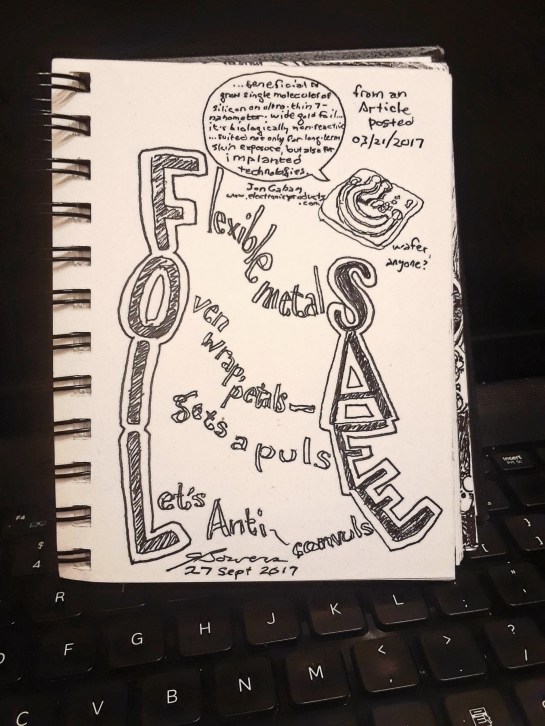 ...beneficial to
grow single molecules of
silicon on ultra-thin 7-
nanometer-wide gold foil...
it's biologically non-reactive
...suited not only for long-term
skin exposure, but also for
implanted
technologies.
Jon Gabay
www.electronicproducts
.com
from an
Article
posted
03/21/2017
wafer,
anyone?
Flexible metalS
Oven wrap, petals—
Sets a puls
Let's Anti-convuls
FOIL
SAFE
SBowers
27 Sept 2017
insert
R
F
G
H
J
K
L
C
V
B
N
M
<
,
>
.
?
/